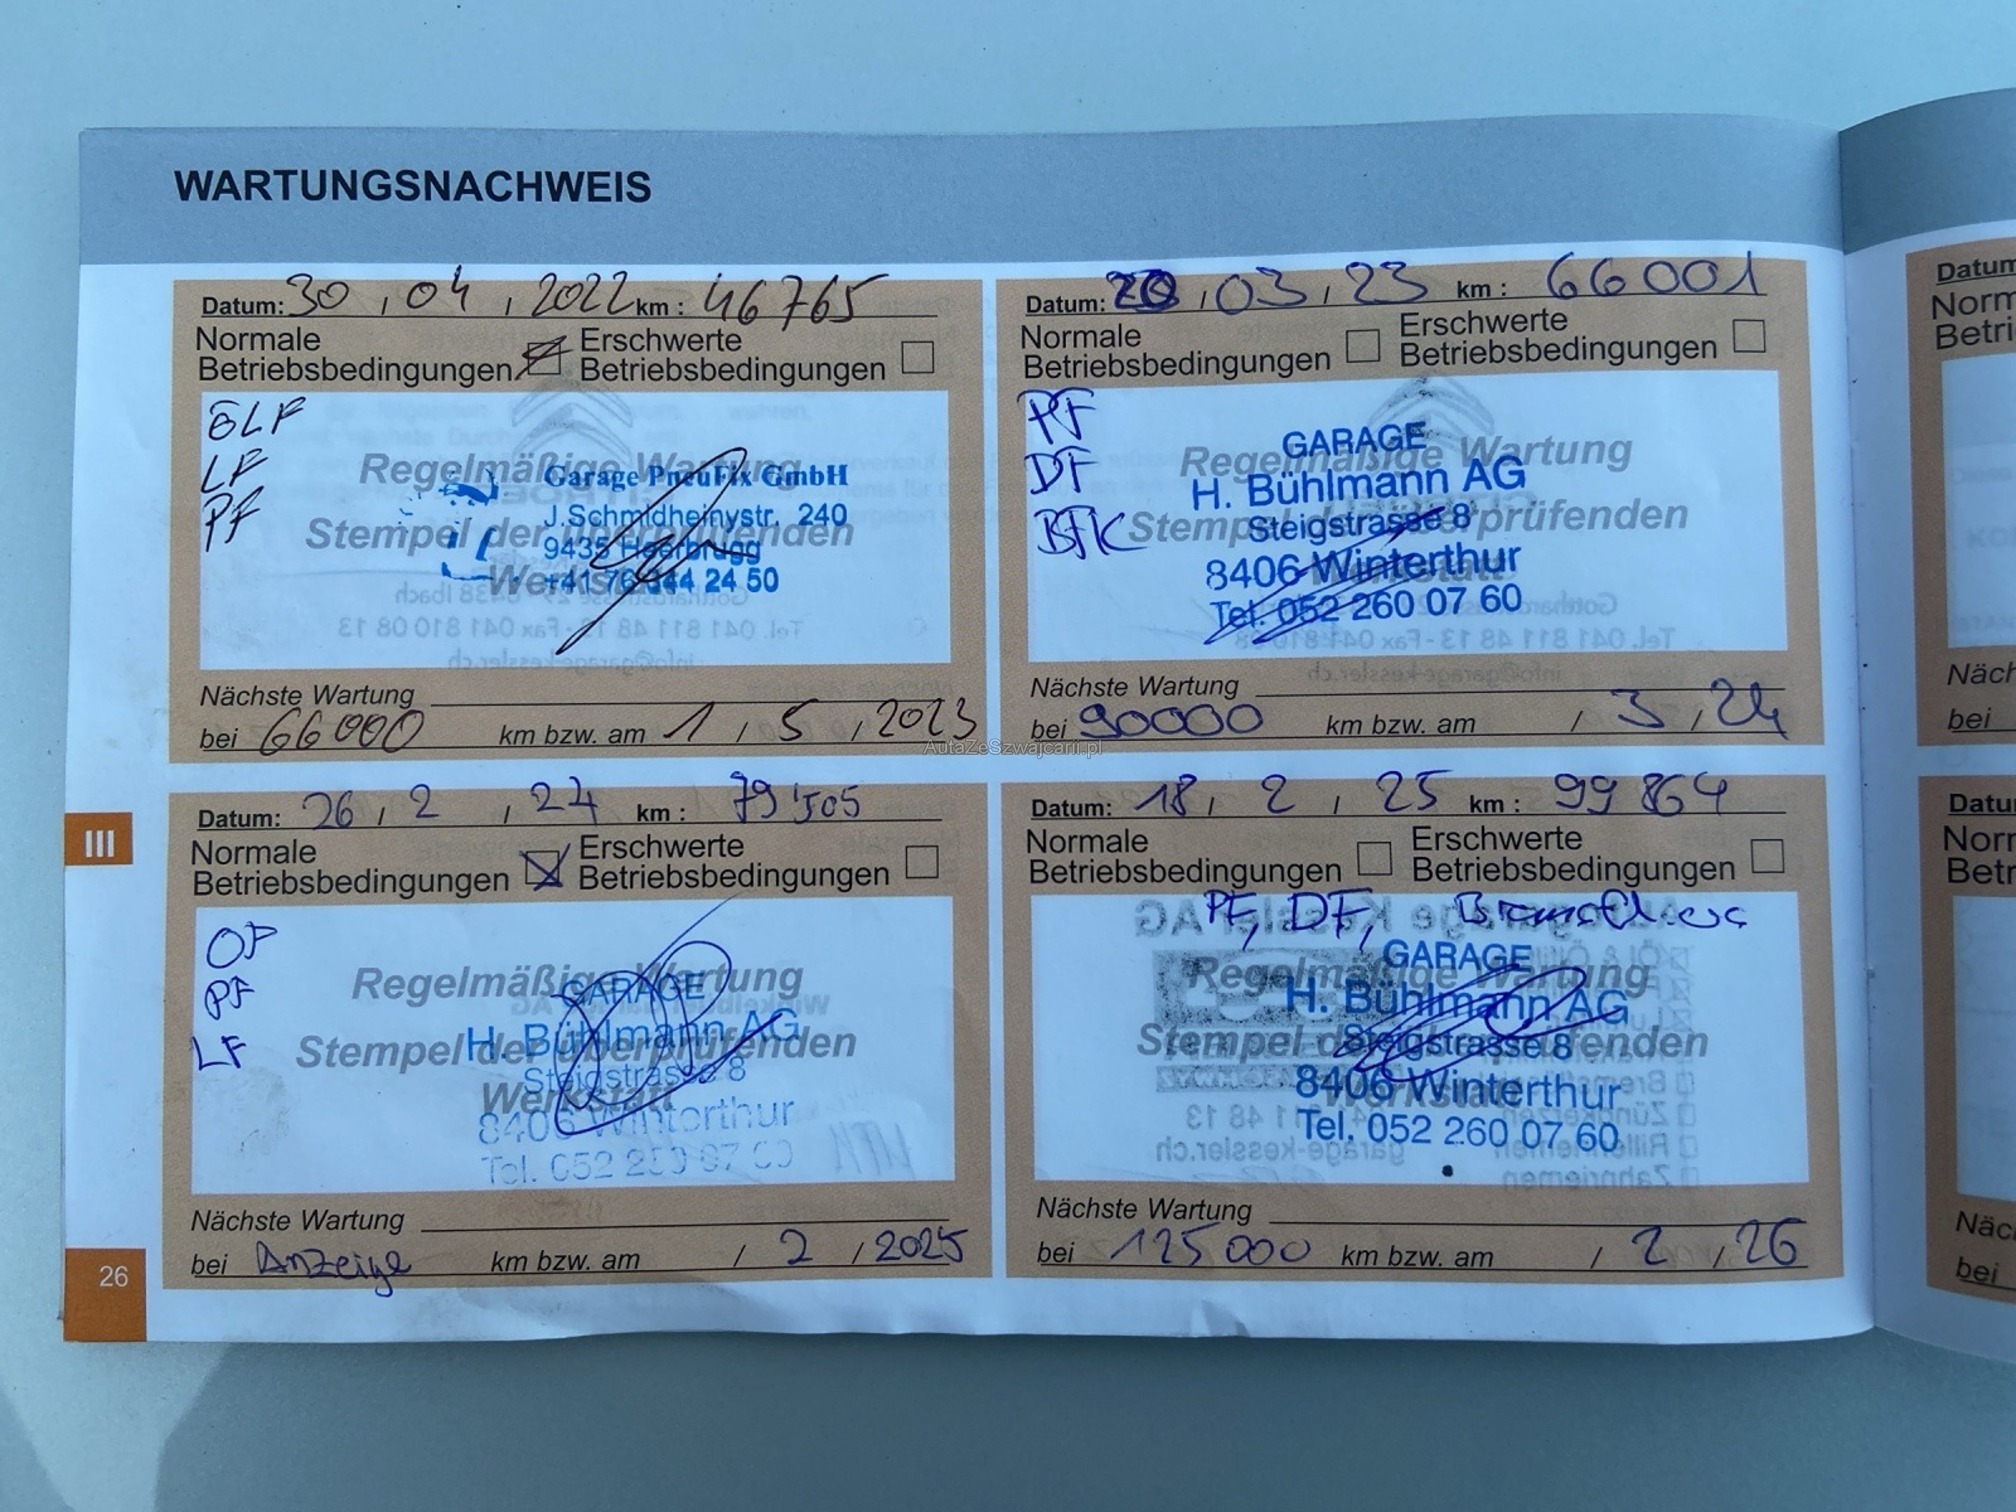 WARTUNGSNACHWEIS
Datum: 30 , 04 , 2022 km : 46765
Normale
Betriebsbedingungen
Erschwerte
Betriebsbedingungen
ÖLF
LF
PF
Regelmäßige Wartung
Stempel der überprüfenden
Werkstatt
Garage PneuFix GmbH
J.Schmidheinystr. 240
9435 Heerbrugg
+41 76 344 24 50
Nächste Wartung
bei 66000 km bzw. am 1 , 5 , 2023
Datum: 20 , 03 , 23 km : 66001
Normale
Betriebsbedingungen
Erschwerte
Betriebsbedingungen
PF
DF
BFK
Regelmäßige Wartung
Stempel der überprüfenden
Werkstatt
GARAGE
H. Bühlmann AG
Steigstrasse 8
8406 Winterthur
Tel. 052 260 07 60
Nächste Wartung
bei 90000 km bzw. am / 3 , 24
AutaZeSzwajcarii.pl
Datum: 26 , 2 , 24 km : 79'505
Normale
Betriebsbedingungen
Erschwerte
Betriebsbedingungen
OF
PF
LF
Regelmäßige Wartung
Stempel der überprüfenden
Werkstatt
GARAGE
H. Bühlmann AG
Steigstrasse 8
8406 Winterthur
Tel. 052 260 07 60
Nächste Wartung
bei Anzeige km bzw. am / 2 / 2025
Datum: 18 , 2 , 25 km : 99864
Normale
Betriebsbedingungen
Erschwerte
Betriebsbedingungen
PF, DF,
Regelmäßige Wartung
Stempel der überprüfenden
Werkstatt
GARAGE
H. Bühlmann AG
Steigstrasse 8
8406 Winterthur
Tel. 052 260 07 60
Nächste Wartung
bei 125000 km bzw. am / 2 , 26
III
26
Datum
Norm
Betri
Näch
bei
Datu
Norr
Betr
Näc
bei